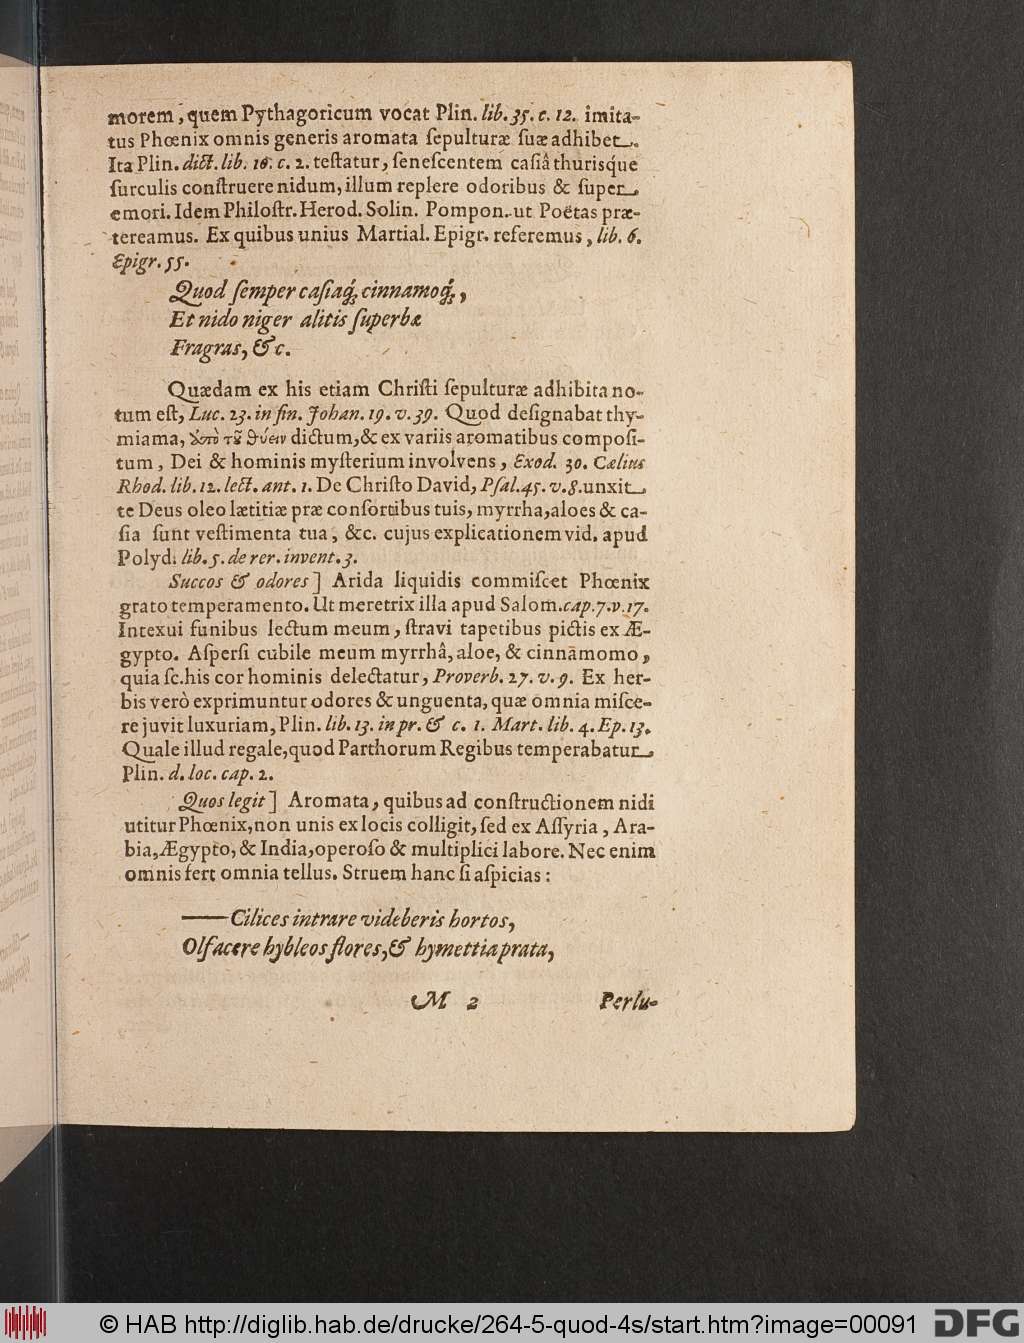 morem, quem Pythagoricum vocat Plin. lib. 35. c. 12. imita-
tus Phœnix omnis generis aromata ſepulturæ ſuæ adhibet.
Ita Plin. dict. lib. 16. c. 2. teſtatur, ſeneſcentem caſiâ thurisque
ſurculis conſtruere nidum, illum replere odoribus & ſuper
emori. Idem Philoſtr. Herod. Solin. Pompon. ut Poëtas præ-
tereamus. Ex quibus unius Martial. Epigr. referemus, lib. 6.
Epigr. 55.
Quod ſemper caſiaq́;, cinnamoq́;,
Et nido niger alitis ſuperbæ
Fragras, &c.
Quædam ex his etiam Chriſti ſepulturæ adhibita no-
tum eſt, Luc. 23. in fin. Johan. 19. v. 39. Quod deſignabat thy-
miama, ἀπὸ τοῦ θύειν dictum, & ex variis aromatibus compoſi-
tum, Dei & hominis myſterium involvens, Exod. 30. Cælius
Rhod. lib. 12. lect. ant. 1. De Chriſto David, Pſal. 45. v. 8. unxit
te Deus oleo lætitiæ præ conſortibus tuis, myrrha, aloes & ca-
ſia ſunt veſtimenta tua, &c. cujus explicationem vid. apud
Polyd. lib. 5. de rer. invent. 3.
Succos & odores] Arida liquidis commiſcet Phœnix
grato temperamento. Ut meretrix illa apud Salom. cap. 7. v. 17.
Intexui funibus lectum meum, ſtravi tapetibus pictis ex Æ-
gypto. Aſperſi cubile meum myrrhâ, aloe, & cinnamomo,
quia ſc. his cor hominis delectatur, Proverb. 27. v. 9. Ex her-
bis verò exprimuntur odores & unguenta, quæ omnia miſce-
re juvit luxuriam, Plin. lib. 13. in pr. & c. 1. Mart. lib. 4. Ep. 13.
Quale illud regale, quod Parthorum Regibus temperabatur
Plin. d. loc. cap. 2.
Quos legit] Aromata, quibus ad conſtructionem nidi
utitur Phœnix, non unis ex locis colligit, ſed ex Aſſyria, Ara-
bia, Ægypto, & India, operoſo & multiplici labore. Nec enim
omnis fert omnia tellus. Struem hanc ſi aſpicias:
—— Cilices intrare videberis hortos,
Olfacere hybleos flores, & hymettia prata,
M 2 Perlu-
© HAB http://diglib.hab.de/drucke/264-5-quod-4s/start.htm?image=00091
DFG